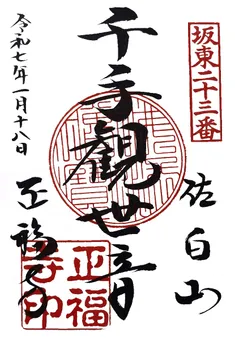 坂東二十三番
佐白山
千手観世音
正福寺
令和七年一月十八日
正福
寺印